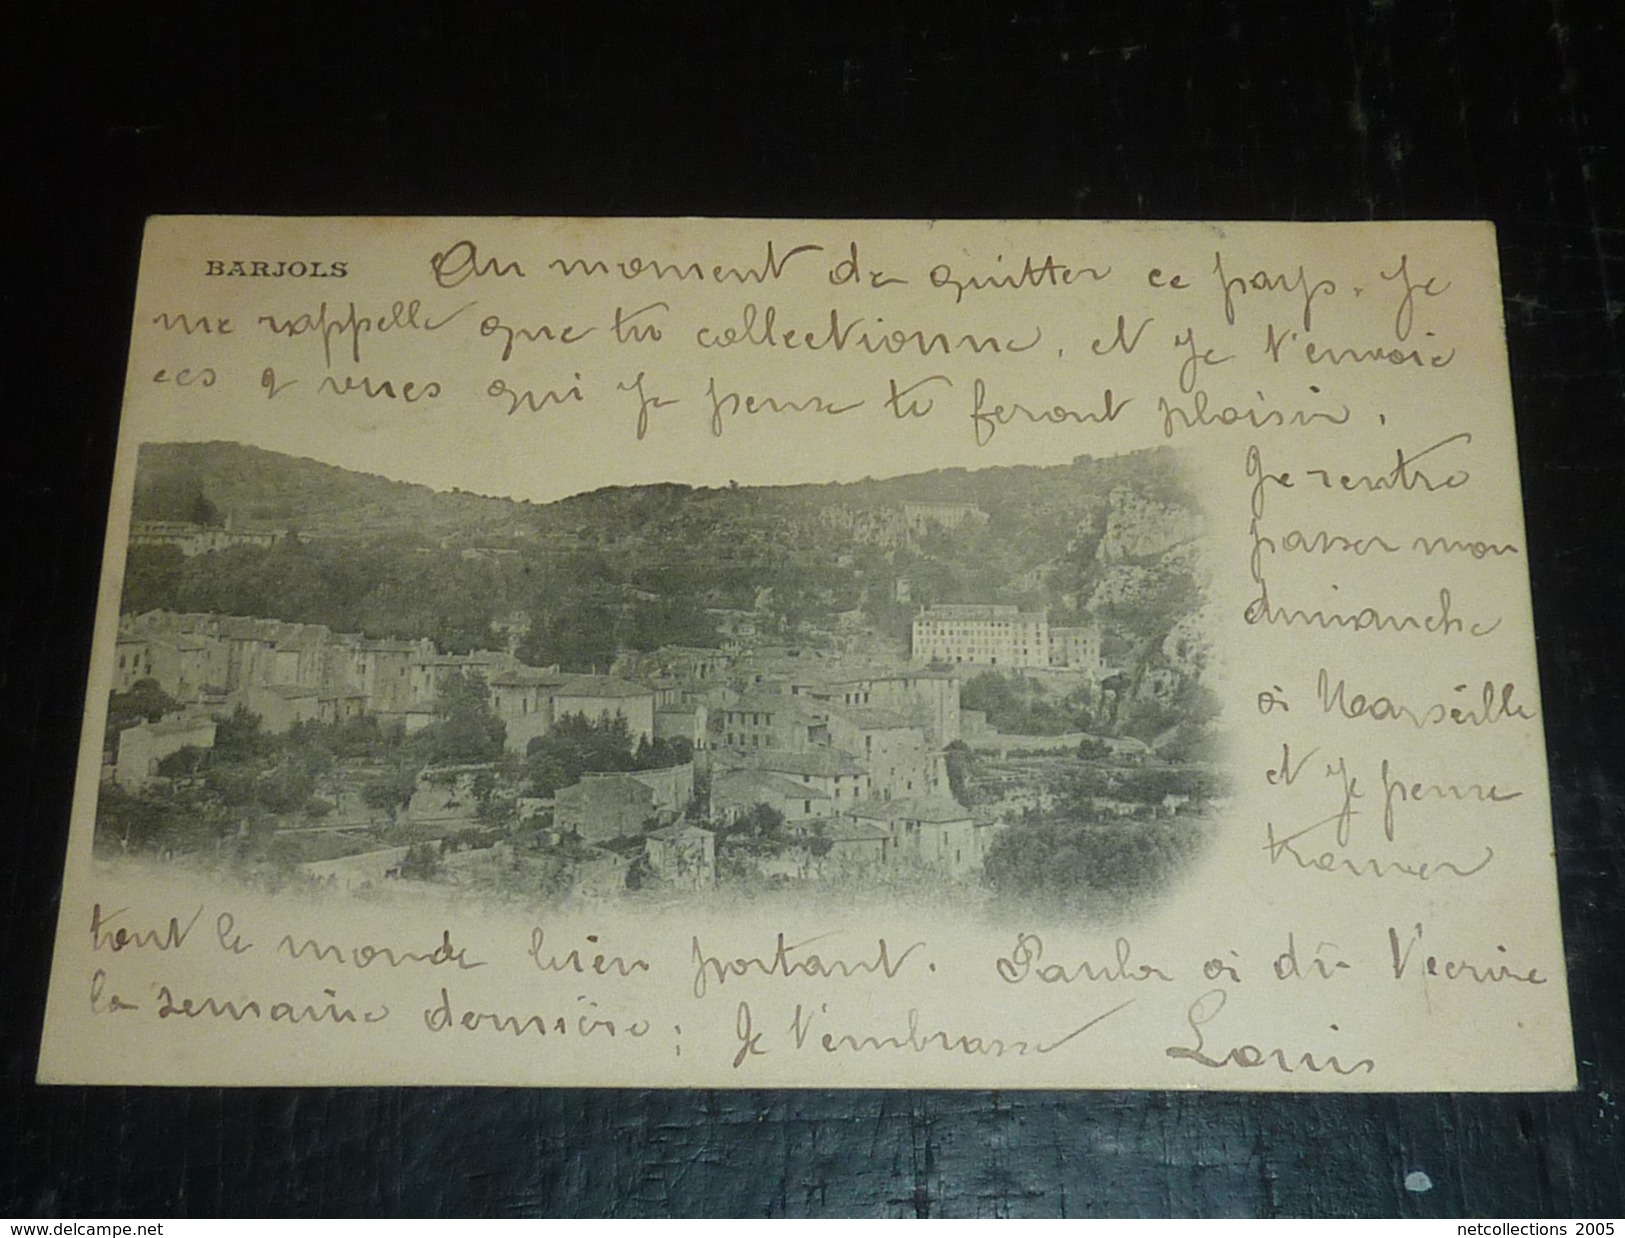 BARJOLS
Au moment de quitter ce pays, je
me rappelle que tu collectionne, et je t'envoie
ces 9 vues qui je pense te feront plaisir.
Je rentre
passer mon
dimanche
à Marseille
et je pense
trouver
tout le monde bien portant. Paula a dû t'écrire
la semaine dernière; Je t'embrasse Louis
www.delcampe.net
netcollections 2005